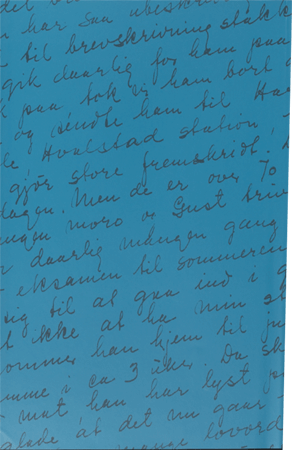 det
har saa ubeskri
til brevskrivning stakk
gik daarlig for ham paa
paa tok vi ham bort
og sendte ham til Ha
Hvalstad station
gjör store fremskridt!
dagen. Men de er over 70
moro og Gust triv
daarlig mangen gang
eksamen til sommeren
tig til at gaa ind i
ikke at ha min
ommer han hjem til ju
mme i ca 3 uker. Du sk
mat han har lyst
glade at det nu gaar
mange lovord